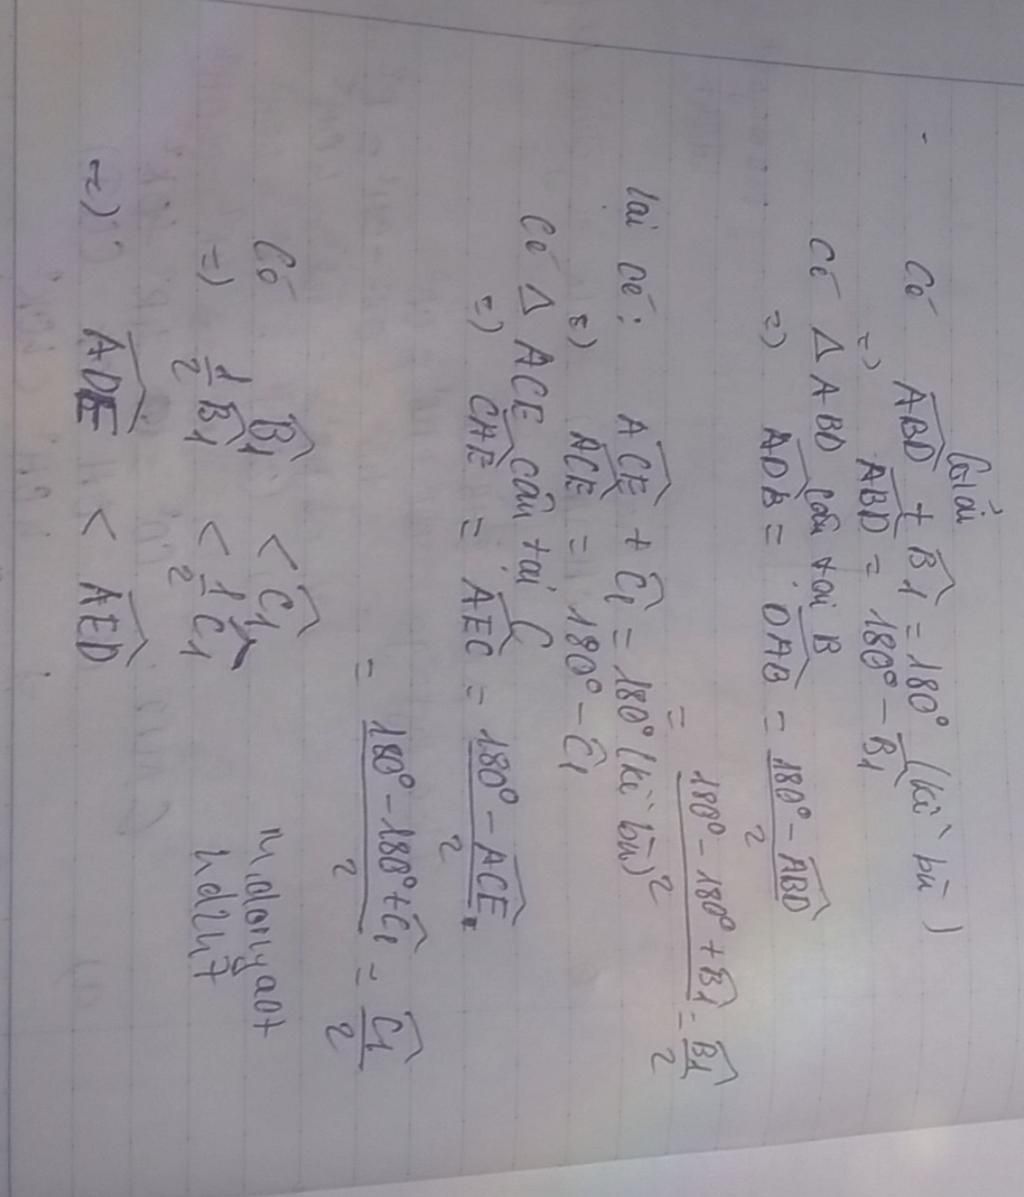 Giải
- Có ABD + B1 = 180° (kề bù)
=) ABD = 180° - B1
Có Δ ABD cân tại B
=) ADB = DAB = (180° - ABD)/2
= (180° - 180° + B1)/2 = B1/2
lại có: ACE + C1 = 180° (kề bù)
=) ACE = 180° - C1
Có Δ ACE cân tại C
=) CAE = AEC = (180° - ACE)/2
= (180° - 180° + C1)/2 = C1/2
Có B1 < C1
=) 1/2 B1 < 1/2 C1
=) ADE < AED